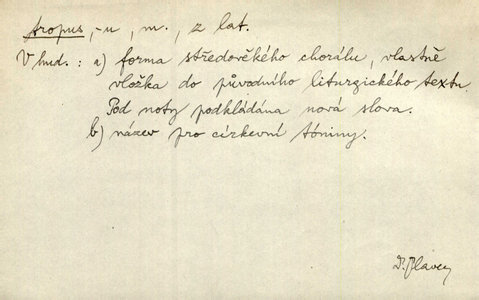 tropus, -u, m., z lat.
V hud.: a) forma středověkého chorálu, vlastně
vložka do původního liturgického textu.
Pod noty podkládána nová slova.
b) název pro církevní tóniny.